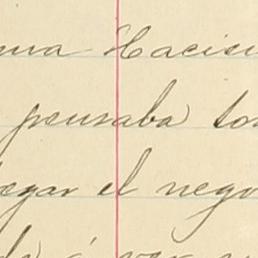 una Hacien
pensaba to
egar el nego
á ver